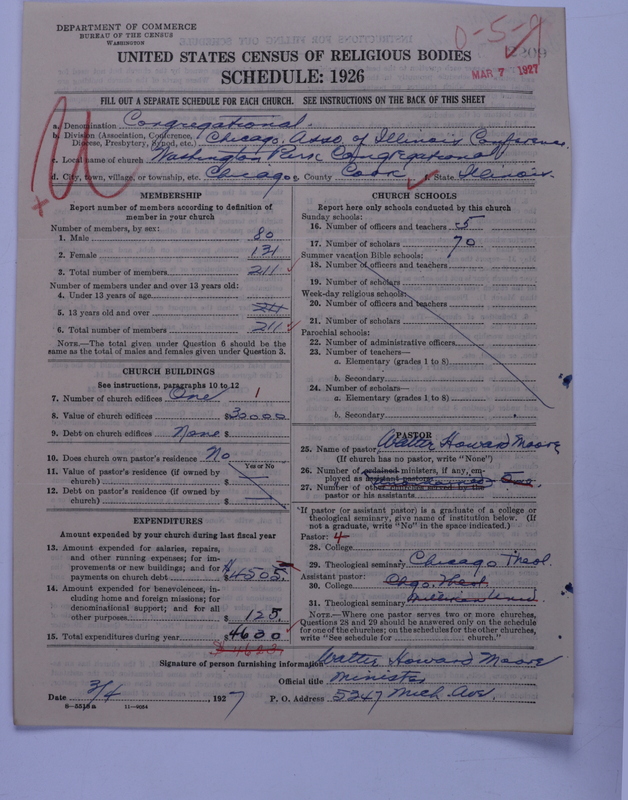 DEPARTMENT OF COMMERCE
BUREAU OF THE CENSUS
WASHINGTON
0-5-9
MAR 7 1927
UNITED STATES CENSUS OF RELIGIOUS BODIES
SCHEDULE: 1926
FILL OUT A SEPARATE SCHEDULE FOR EACH CHURCH. SEE INSTRUCTIONS ON THE BACK OF THIS SHEET
a. Denomination Congregational.
b. Division (Association, Conference, Diocese, Presbytery, Synod, etc.) Chicago, Asso. of Illinois Conference.
c. Local name of church Washington Park Congregational
d. City, town, village, or township, etc. Chicago e. County Cook f. State Illinois.
MEMBERSHIP
Report number of members according to definition of
member in your church
Number of members, by sex:
1. Male 80
2. Female 131
3. Total number of members 211
Number of members under and over 13 years old:
4. Under 13 years of age
5. 13 years old and over 211
6. Total number of members 211
NOTE.—The total given under Question 6 should be the
same as the total of males and females given under Question 3.
CHURCH BUILDINGS
See instructions, paragraphs 10 to 12
7. Number of church edifices One 1
8. Value of church edifices $30000
9. Debt on church edifices None $
10. Does church own pastor's residence No
Yes or No
11. Value of pastor's residence (if owned by
church) $
12. Debt on pastor's residence (if owned by
church) $
EXPENDITURES
Amount expended by your church during last fiscal year
13. Amount expended for salaries, repairs,
and other running expenses; for im-
provements or new buildings; and for
payments on church debt $4505.
14. Amount expended for benevolences, in-
cluding home and foreign missions; for
denominational support; and for all
other purposes $125.
15. Total expenditures during year $4630
CHURCH SCHOOLS
Report here only schools conducted by this church
Sunday schools:
16. Number of officers and teachers 5
17. Number of scholars 70
Summer vacation Bible schools:
18. Number of officers and teachers
19. Number of scholars
Week-day religious schools:
20. Number of officers and teachers
21. Number of scholars
Parochial schools:
22. Number of administrative officers
23. Number of teachers—
a. Elementary (grades 1 to 8)
b. Secondary
24. Number of scholars—
a. Elementary (grades 1 to 8)
b. Secondary
PASTOR
25. Name of pastor Walter Howard Moore
(If church has no pastor, write "None")
26. Number of ordained ministers, if any, em-
ployed as assistant pastors
27. Number of other churches served by the
pastor or his assistants
If pastor (or assistant pastor) is a graduate of a college or
theological seminary, give name of institution below. (If
not a graduate, write "No" in the space indicated.)
Pastor: 4
28. College
29. Theological seminary Chicago Theol.
Assistant pastor:
30. College Chgo. Theol.
31. Theological seminary
NOTE.—Where one pastor serves two or more churches,
Questions 28 and 29 should be answered only on the schedule
for one of the churches; on the schedules for the other churches,
write "See schedule for church."
Signature of person furnishing information Walter Howard Moore
Official title Minister
Date 3/4, 1927 P. O. Address 5247 Mich Ave.
8—5518a 11—9034